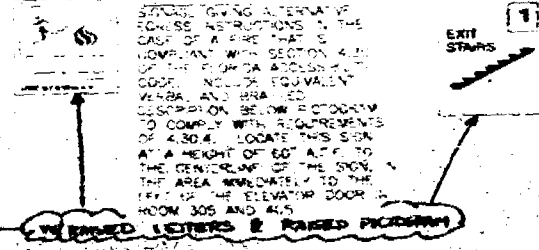 SIGNAGE GIVING ALTERNATIVE
EGRESS INSTRUCTIONS IN THE
CASE OF A FIRE THAT IS
COMPLIANT WITH SECTION
OF THE FLORIDA ACCESS
CODE. INCLUDE EQUIVALENT
VERBAL AND BRAILLED
DESCRIPTION BELOW PICTOGRAM
TO COMPLY WITH REQUIREMENTS
OF 4.30.4. LOCATE THIS SIGN
AT A HEIGHT OF 60" A.F.F. TO
THE CENTERLINE OF THE SIGN,
THE AREA IMMEDIATELY TO THE
LEFT OF THE ELEVATOR DOOR IN
ROOM 305 AND 405
1
EXIT
STAIRS
W/ RAISED LETTERS & RAISED PICTOGRAM